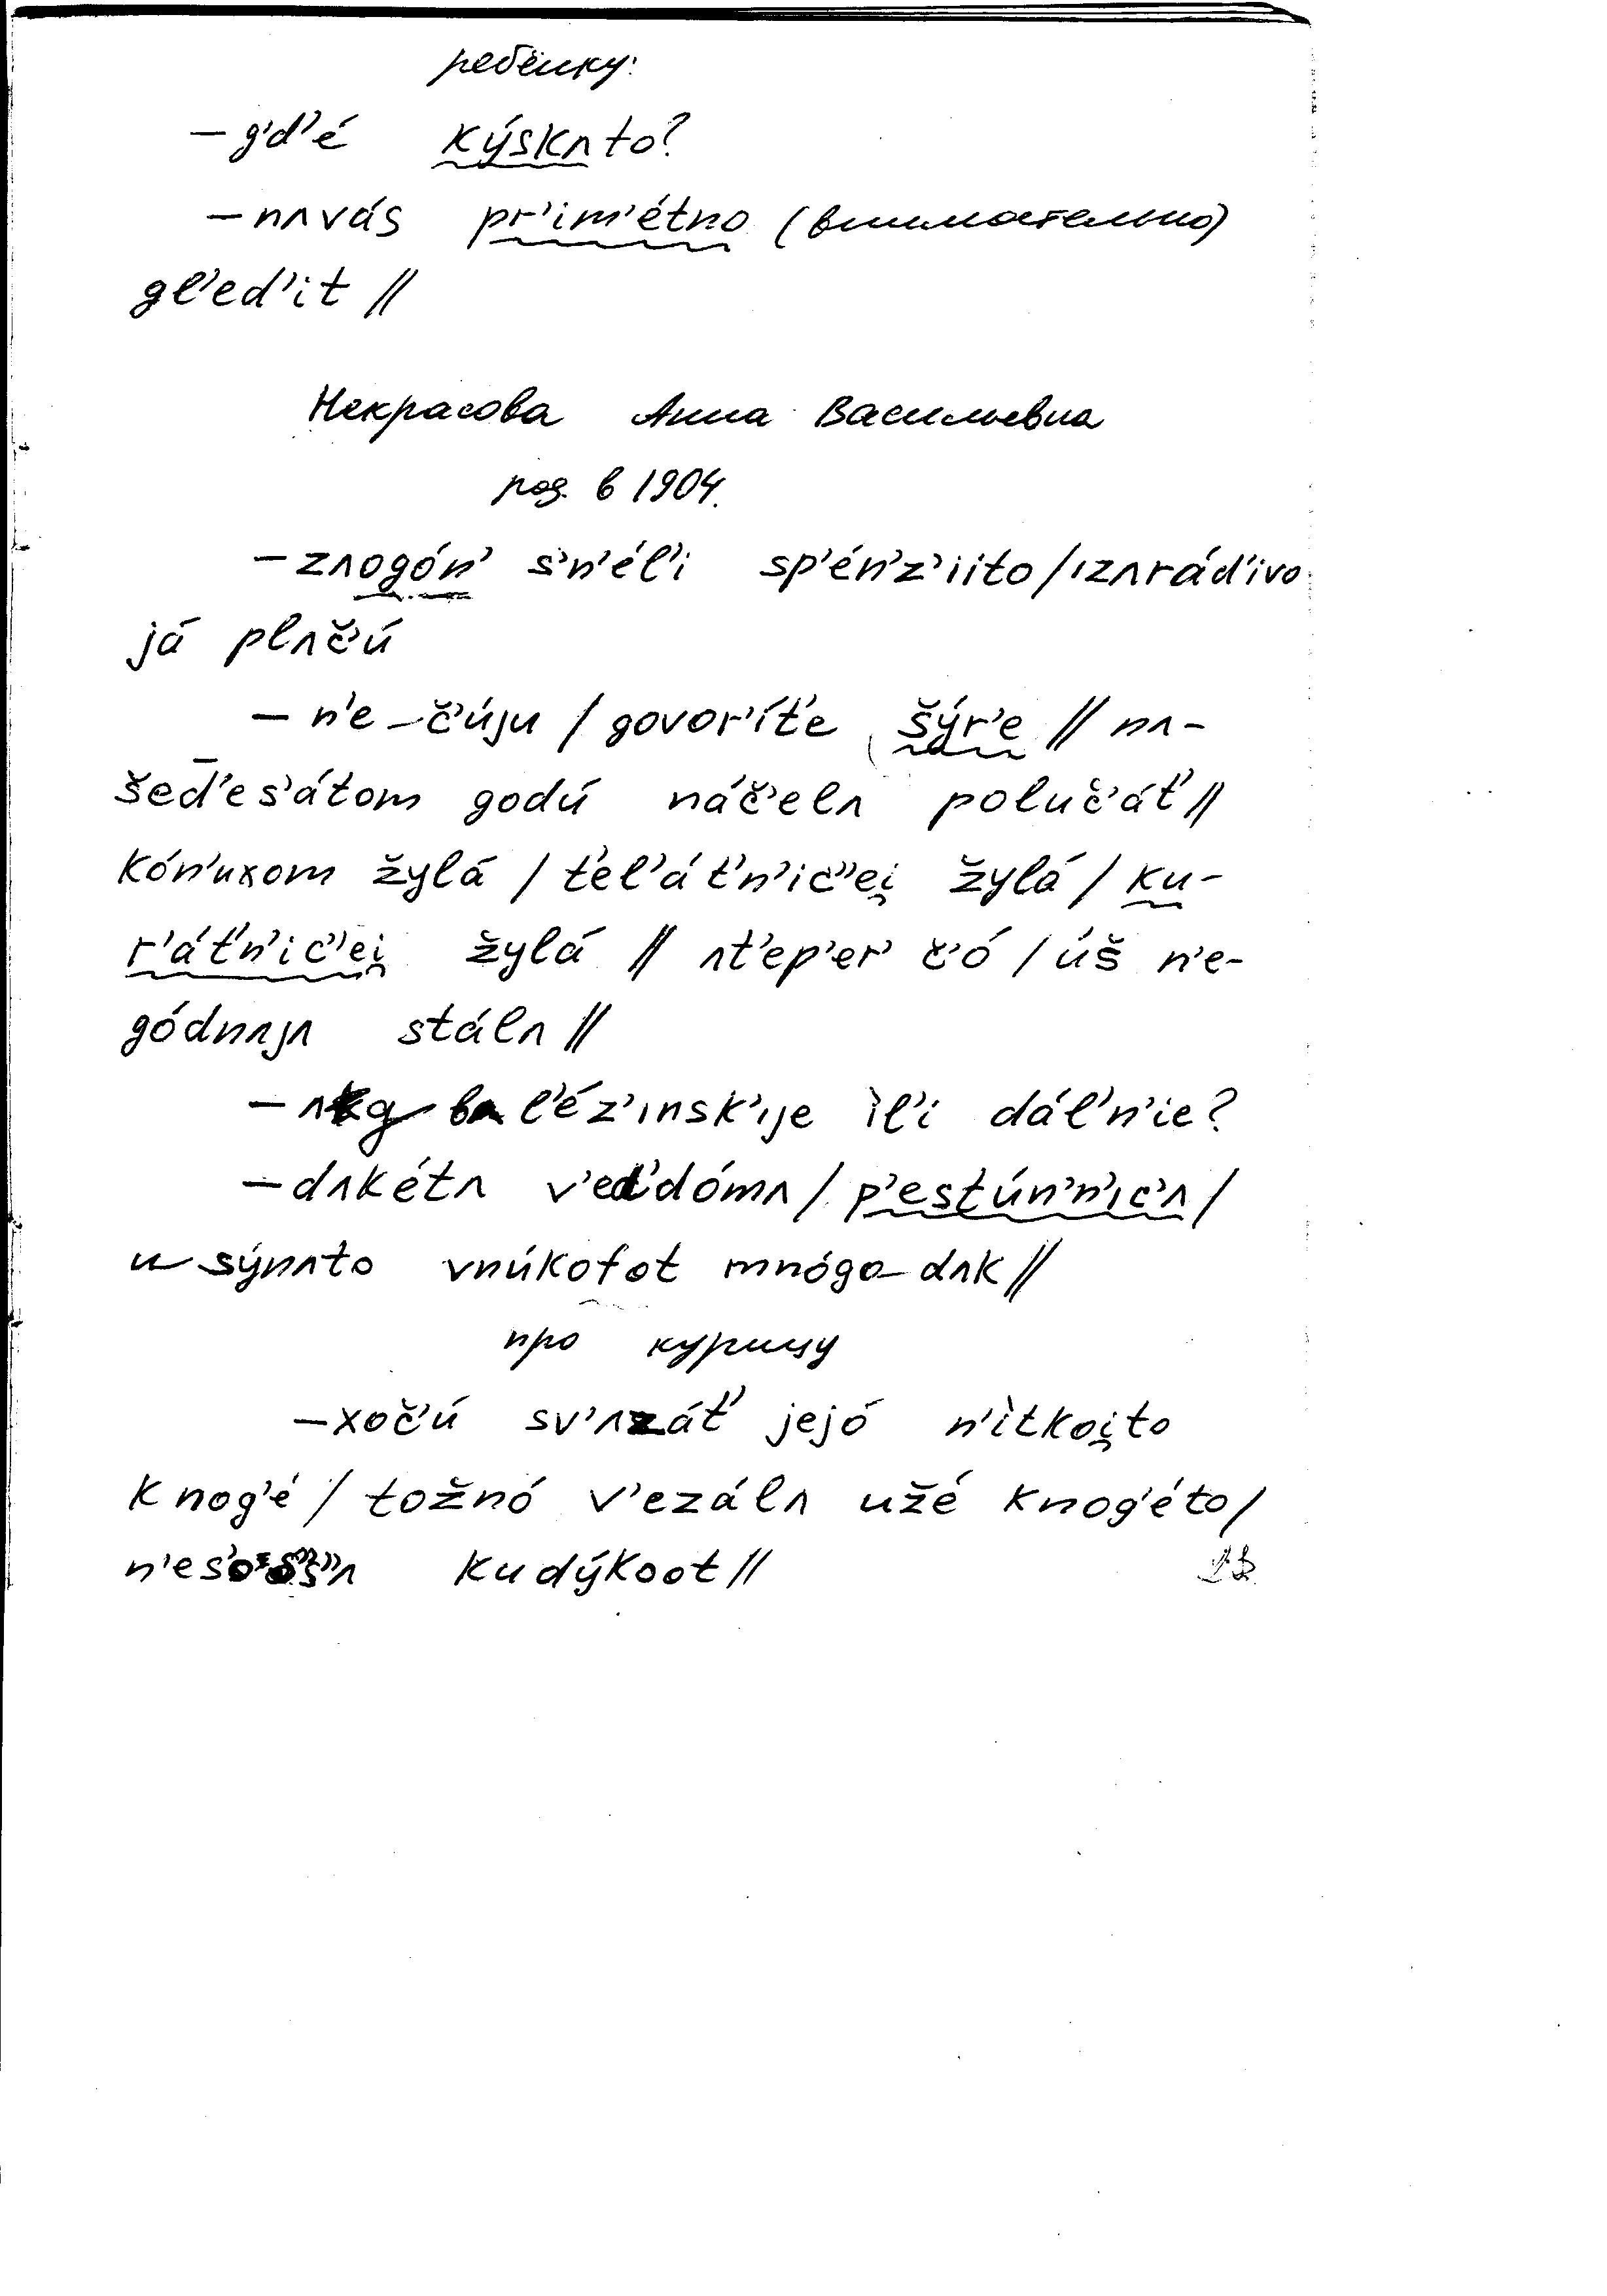 ребёнку:
– g'd'é kýskʌto?
– nʌvás pr'im'étno (внимательно)
gl'ed'it //
Некрасова Анна Васильевна
род. в 1904.
– zʌogón' s'n'él'i sp'én'z'iito / ızʌrád'ivo
já plʌč'ú
– n'e č'úju / govor'ít'e šýr'e // nʌ-
šed'es'átom godú náč'elʌ poluč'át' //
kón'uxom žylá / t'el'át'n'ic'ei̯ žylá / ku-
r'át'n'ic'ei̯ žylá // ʌt'ep'er' č'ó / úš n'e-
gódnʌjʌ stálʌ //
– bʌl'éz'ınsk'ıje ìl'i dál'n'ie?
– dʌkétʌ v'ed'dómʌ / p'estún'n'ıc'ʌ /
u sýnʌto vnúkofot mnógo dʌk //
про курицу
– xoč'ú sv'ʌzát' jejó n'ìtkoi̯to
k nog'é / tožnó v'ezálʌ užé k nog'éto /
kudýkoot //